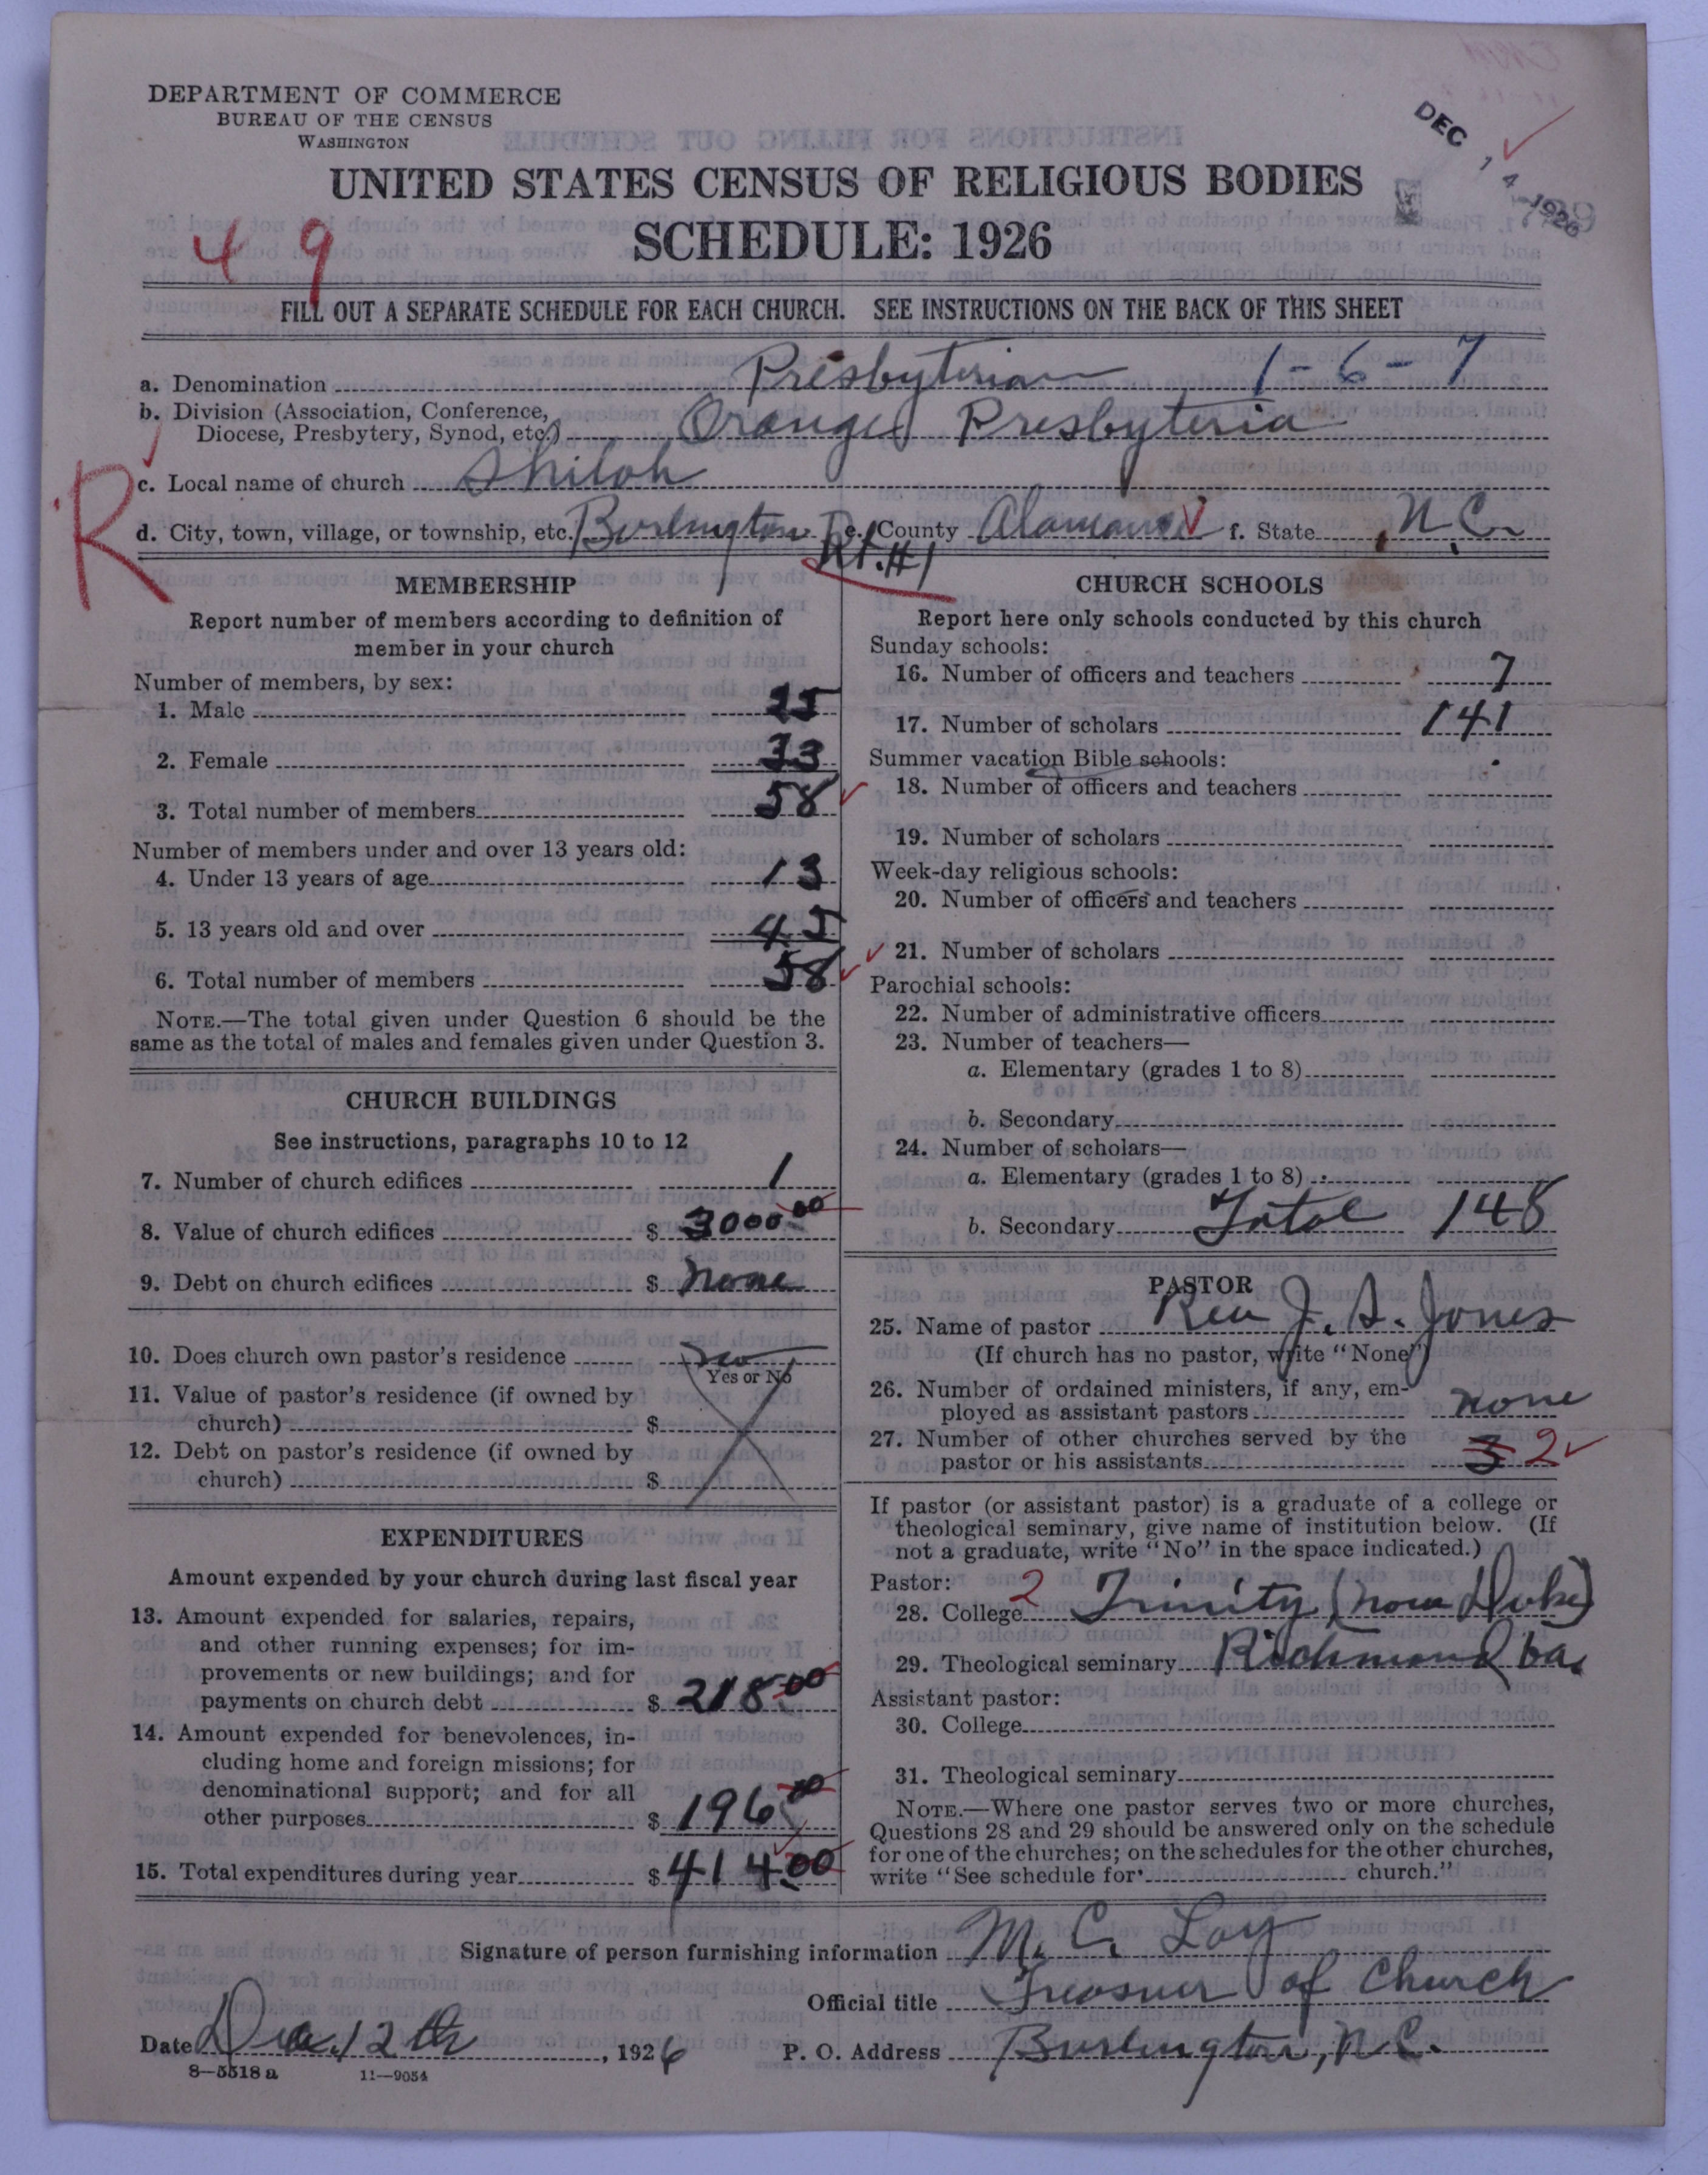 DEPARTMENT OF COMMERCE
BUREAU OF THE CENSUS
WASHINGTON
DEC 14 1926
UNITED STATES CENSUS OF RELIGIOUS BODIES
SCHEDULE: 1926
49
FILL OUT A SEPARATE SCHEDULE FOR EACH CHURCH. SEE INSTRUCTIONS ON THE BACK OF THIS SHEET
a. Denomination Presbyterian 1-6-7
b. Division (Association, Conference,
Diocese, Presbytery, Synod, etc.) Orange Presbyteria
R
c. Local name of church Shiloh
d. City, town, village, or township, etc. Burlington e. County Alamance f. State N.C.
Rt. #1
MEMBERSHIP
Report number of members according to definition of
member in your church
Number of members, by sex:
1. Male 25
2. Female 33
3. Total number of members 58
Number of members under and over 13 years old:
4. Under 13 years of age 13
5. 13 years old and over 45
6. Total number of members 58
NOTE.—The total given under Question 6 should be the
same as the total of males and females given under Question 3.
CHURCH BUILDINGS
See instructions, paragraphs 10 to 12
7. Number of church edifices 1
8. Value of church edifices $ 3000.00
9. Debt on church edifices $ none
10. Does church own pastor's residence no
Yes or No
11. Value of pastor's residence (if owned by
church) $
12. Debt on pastor's residence (if owned by
church) $
EXPENDITURES
Amount expended by your church during last fiscal year
13. Amount expended for salaries, repairs,
and other running expenses; for im-
provements or new buildings; and for
payments on church debt $ 218.00
14. Amount expended for benevolences, in-
cluding home and foreign missions; for
denominational support; and for all
other purposes $ 196.00
15. Total expenditures during year $ 414.00
CHURCH SCHOOLS
Report here only schools conducted by this church
Sunday schools:
16. Number of officers and teachers 7
17. Number of scholars 141
Summer vacation Bible schools:
18. Number of officers and teachers
19. Number of scholars
Week-day religious schools:
20. Number of officers and teachers
21. Number of scholars
Parochial schools:
22. Number of administrative officers
23. Number of teachers—
a. Elementary (grades 1 to 8)
b. Secondary
24. Number of scholars—
a. Elementary (grades 1 to 8)
b. Secondary Total 148
PASTOR
25. Name of pastor Rev J. S. Jones
(If church has no pastor, write "None")
26. Number of ordained ministers, if any, em-
ployed as assistant pastors none
27. Number of other churches served by the
pastor or his assistants 3 2
If pastor (or assistant pastor) is a graduate of a college or
theological seminary, give name of institution below. (If
not a graduate, write "No" in the space indicated.)
Pastor: 2
28. College Trinity (now Duke)
29. Theological seminary Richmond Va.
Assistant pastor:
30. College
31. Theological seminary
NOTE.—Where one pastor serves two or more churches,
Questions 28 and 29 should be answered only on the schedule
for one of the churches; on the schedules for the other churches,
write "See schedule for church."
Signature of person furnishing information M. C. Loy
Official title Treasurer of Church
Date Dec. 12th, 1926 P. O. Address Burlington, N.C.
8—5518 a 11—9054